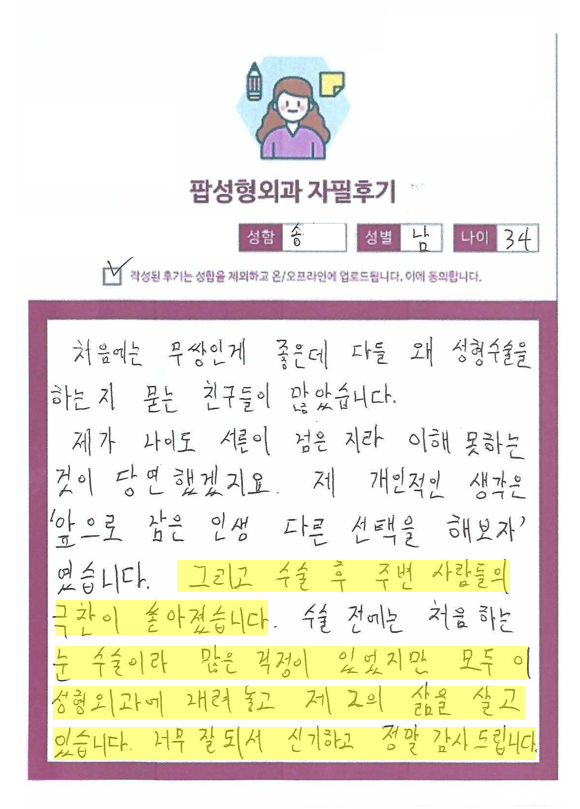 팝성형외과 자필후기
성함 송 성별 남 나이 34
작성된 후기는 성함을 제외하고 온/오프라인에 업로드됩니다. 이에 동의합니다.
처음에는 무쌍인게 좋은데 다들 왜 성형수술을
하는지 묻는 친구들이 많았습니다.
제가 나이도 서른이 넘은 지라 이해 못하는
것이 당연했겠지요. 제 개인적인 생각은
'앞으로 남은 인생 다른 선택을 해보자'
였습니다. 그리고 수술 후 주변 사람들의
극찬이 쏟아졌습니다. 수술 전에는 처음 하는
눈 수술이라 많은 걱정이 있었지만 모두 이
성형외과에 내려놓고 제 2의 삶을 살고
있습니다. 너무 잘되서 신기하고 정말 감사드립니다.